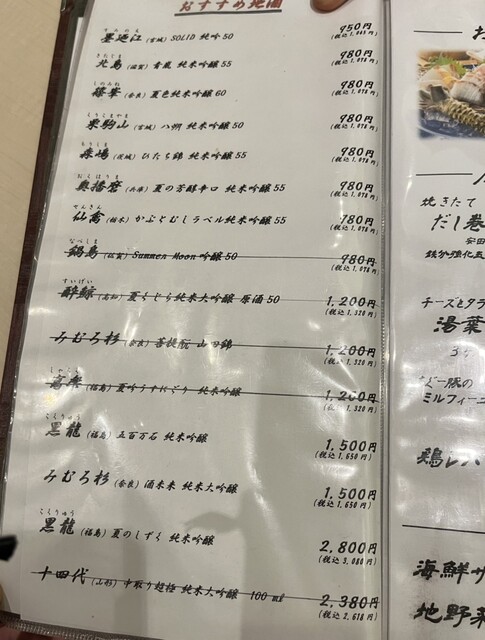 おすすめ地酒
すみのえ
墨廼江 (宮城) SOLID 純吟 50 950円
(税込 1,045円)
きたじま
北島 (滋賀) 青龍 純米吟醸 55 980円
(税込 1,078円)
しのみね
篠峯 (奈良) 夏色純米吟醸 60 980円
(税込 1,078円)
くりこまやま
栗駒山 (宮城) 八朔 純米吟醸 50 980円
(税込 1,078円)
もりしま
森嶋 (茨城) ひたち錦 純米吟醸 55 980円
(税込 1,078円)
おくはりま
奥播磨 (兵庫) 夏の芳醇辛口 純米吟醸 55 980円
(税込 1,078円)
せんきん
仙禽 (栃木) かぶとむしラベル純米吟醸 55 980円
(税込 1,078円)
なべしま
鍋島 (佐賀) Summer Moon 吟醸 50 980円
(税込 1,078円)
すいげい
酔鯨 (高知) 夏くじら純米大吟醸 原酒 50 1,200円
(税込 1,320円)
みむろ杉 (奈良) 菩提酛 山田錦 1,200円
(税込 1,320円)
(福島) 夏吟うすにごり 純米吟醸 1,200円
(税込 1,320円)
こくりゅう
黒龍 (福島) 五百万石 純米吟醸 1,500円
(税込 1,650円)
みむろ杉 (奈良) 酒未来 純米大吟醸 1,500円
(税込 1,650円)
こくりゅう
黒龍 (福島) 夏のしずく 純米吟醸 2,800円
(税込 3,080円)
十四代 (山形) 中取り超極 純米大吟醸 100 ml 2,380円
(税込 2,618円)
お
焼きたて
だし巻
安田
鉄分強化
チーズとタラ
湯葉
ミルフィーユ
鶏レバ
海鮮サ
地野菜